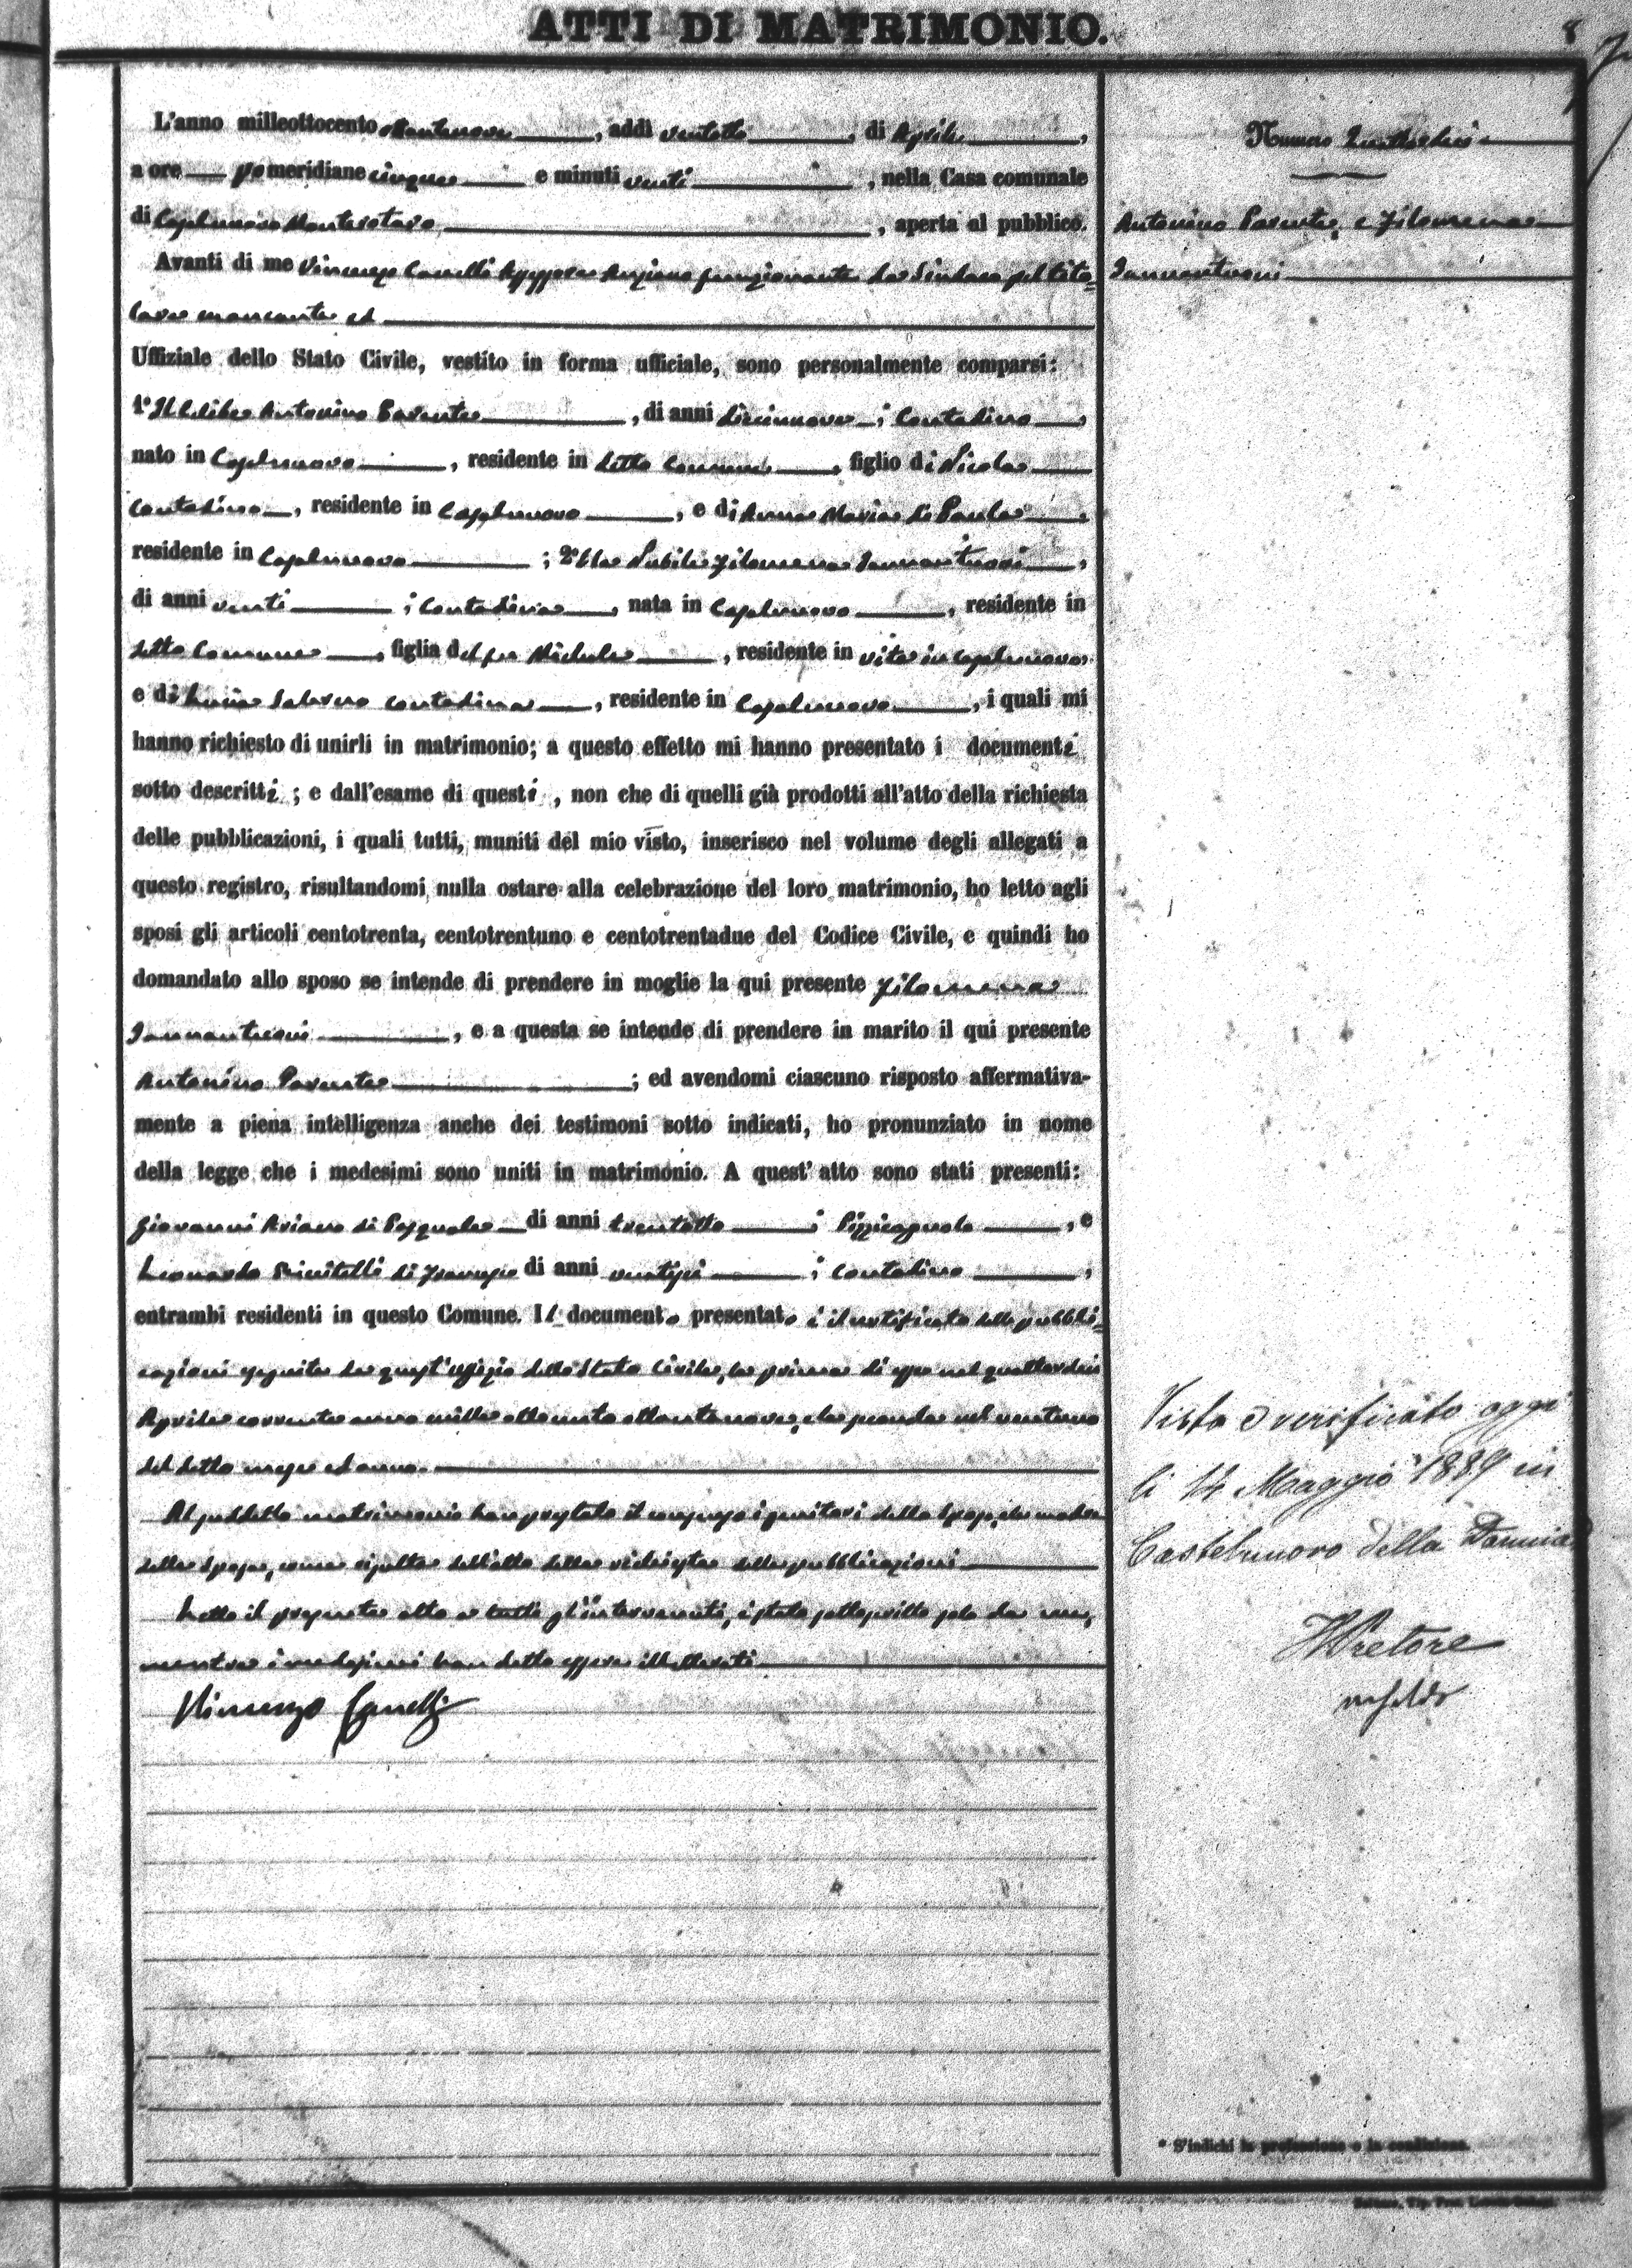 ATTI DI MATRIMONIO.
8
L'anno milleottocento ottantanove, addì ventotto, di Aprile,
a ore pomeridiane cinque e minuti venti, nella Casa comunale
di Castelnuovo Monterotaro, aperta al pubblico.
Avanti di me Vincenzo Canelli Assessore Anziano funzionante da Sindaco pel tito=
lare mancante ed
Uffiziale dello Stato Civile, vestito in forma ufficiale, sono personalmente comparsi:
1° Il Celibe Antonino Parente, di anni diciannove; Contadino,
nato in Casalnuovo, residente in detto Comune, figlio di Nicola
Contadino, residente in Casalnuovo, e di Anna Maria di Paola,
residente in Casalnuovo; 2° la Nubile Filomena Iannantuoni,
di anni venti; Contadina, nata in Casalnuovo, residente in
detto Comune, figlia del fu Michele, residente in vita in Casalnuovo
e di Lucia Salerno contadina, residente in Casalnuovo, i quali mi
hanno richiesto di unirli in matrimonio; a questo effetto mi hanno presentato i documenti
sotto descritti; e dall'esame di questi, non che di quelli già prodotti all'atto della richiesta
delle pubblicazioni, i quali tutti, muniti del mio visto, inserisco nel volume degli allegati a
questo registro, risultandomi nulla ostare alla celebrazione del loro matrimonio, ho letto agli
sposi gli articoli centotrenta, centotrentuno e centotrentadue del Codice Civile, e quindi ho
domandato allo sposo se intende di prendere in moglie la qui presente Filomena
Iannantuoni, e a questa se intende di prendere in marito il qui presente
Antonino Parente; ed avendomi ciascuno risposto affermativa-
mente a piena intelligenza anche dei testimoni sotto indicati, ho pronunziato in nome
della legge che i medesimi sono uniti in matrimonio. A quest' atto sono stati presenti:
Giovanni Ariano di Pasquale di anni trentotto; Pizzicagnolo, e
Leonardo di Francesco di anni ventisei; contadino,
entrambi residenti in questo Comune. Il documento presentato è il certificato delle pubbli=
cazioni eseguite da quest'uffizio dello Stato Civile, la prima di esse nel quattordici
Aprile corrente anno mille ottocento ottantanove, e la seconda nel ventuno
del detto mese ed anno.
Al suddetto matrimonio han prestato il consenso i genitori dello sposo, e la madre
della sposa, come risulta dall'atto della richiesta delle pubblicazioni
Letto il presente atto a tutti gl'intervenuti, è stato sottoscritto solo da me,
mentre i medesimi han detto essere illetterati
Vincenzo Canelli
Numero Quattordici
Antonino Parente e Filomena
Iannantuoni
Visto e verificato oggi
li 14 Maggio 1889 in
Castelnuovo della Daunia
Il Pretore
* S'indichi la professione o la condizione.